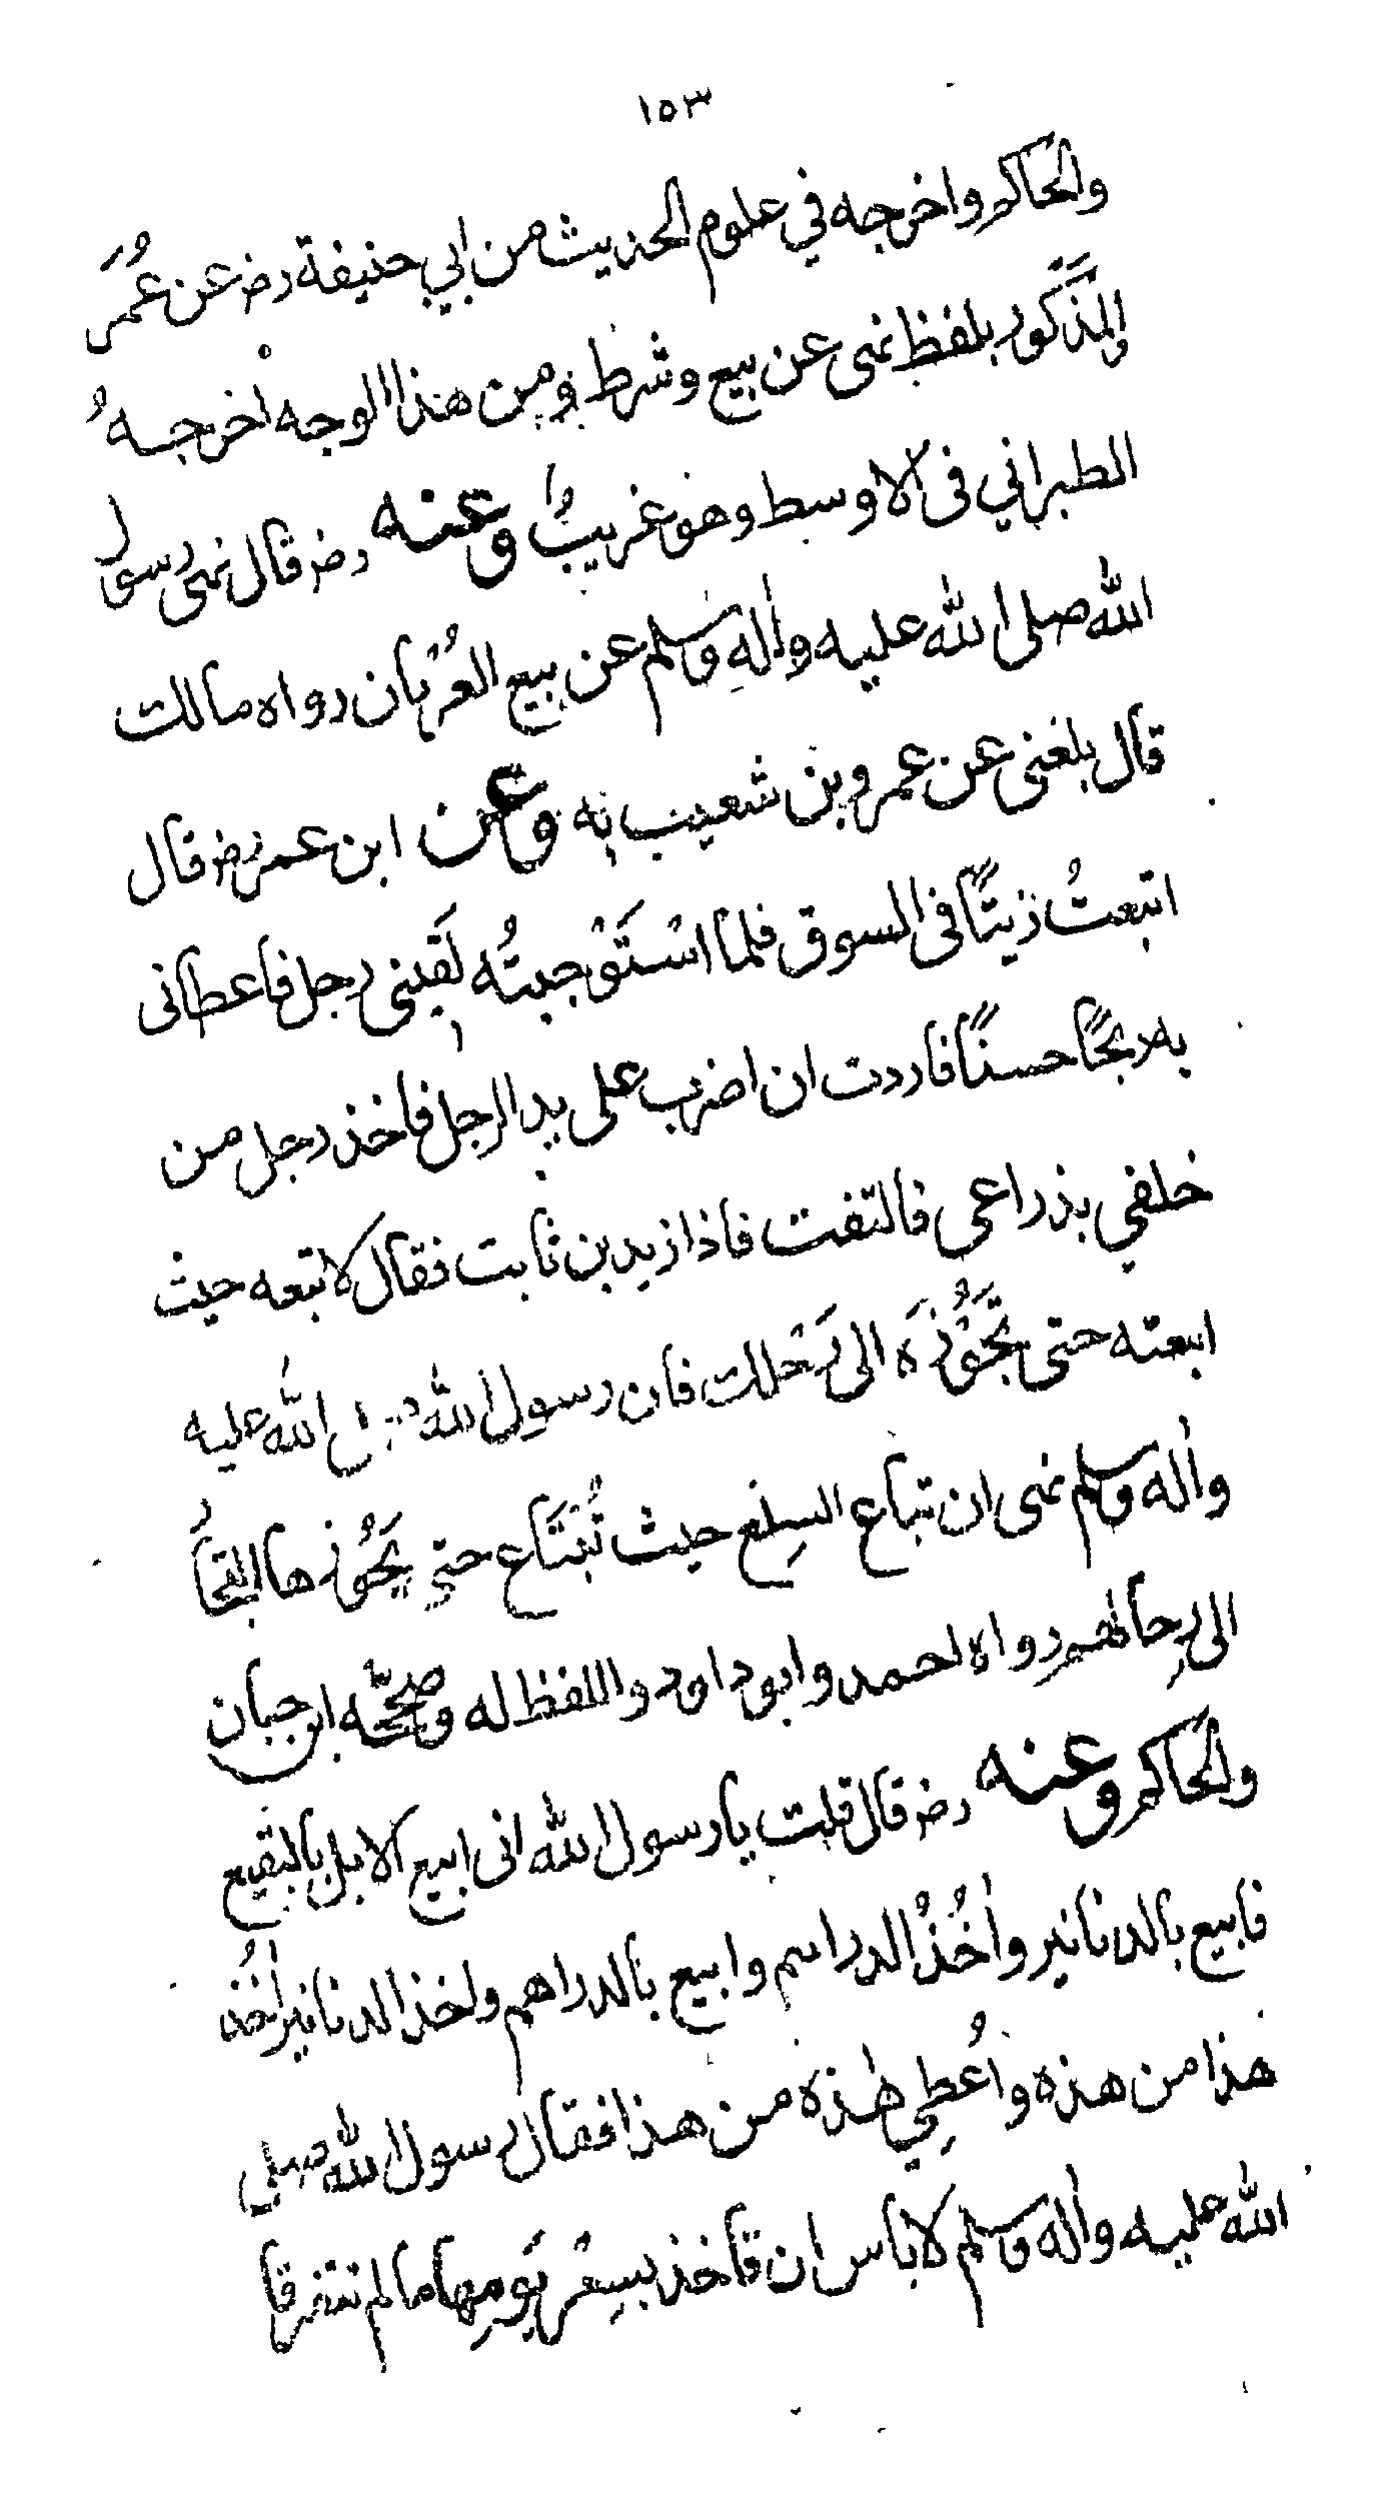 ١٥٣
والحاكم واخرجه في علوم الحديث من ابي حنيفة رض عن عُمَر
والمذكور بلفظ نهى عن بيع وشرط ومن هذا الوجه اخرجهُ
الطبراني فى الاوسط وهو غريبٌ وعنه رض قال نهى رسول
الله صلى الله عليه واٰلهِ وسلم عن بيع العُرْبان رواه مالك
قال بلغنى عن عمرو بن شعيب به وعن ابن عمر رض قال
ابتعتُ زيتًا فى السوق فلما اسْتَوْجبتُه لَقِينى رجل فاعطانى
به ربحًا حسنًا فاردت ان اضرب على يد الرجل فاخذ رجل من
خلفي بذراعى فالتفت فاذا زيد بن ثابت فقال لا تبعه حيث
ابعته حتى تَحُوْزَه الى رَحْلك فان رسول الله صلى الله عليه
واٰله وسلم نهى ان تباع السِلَع حيث تُبْتَاع حتى يَحُوْزها التجارُ
الى رِحالهم رواه احمد وابو داود واللفظ له وصحّحه ابن حبان
والحاكم وعنه رض قال قلت يا رسول الله انى ابيع الابل بالبقيع
فابيع بالدنانير واٰخُذُ الدراهم وابيع بالدراهم واخذ الدنانير اٰخُذ
هذا من هذه واُعْطِي هٰذه من هذا فقال رسول الله صلى
الله عليه واٰله وسلم لا باس ان تأخذ بسِعْرِ يَومِها ما لم تتفرقا